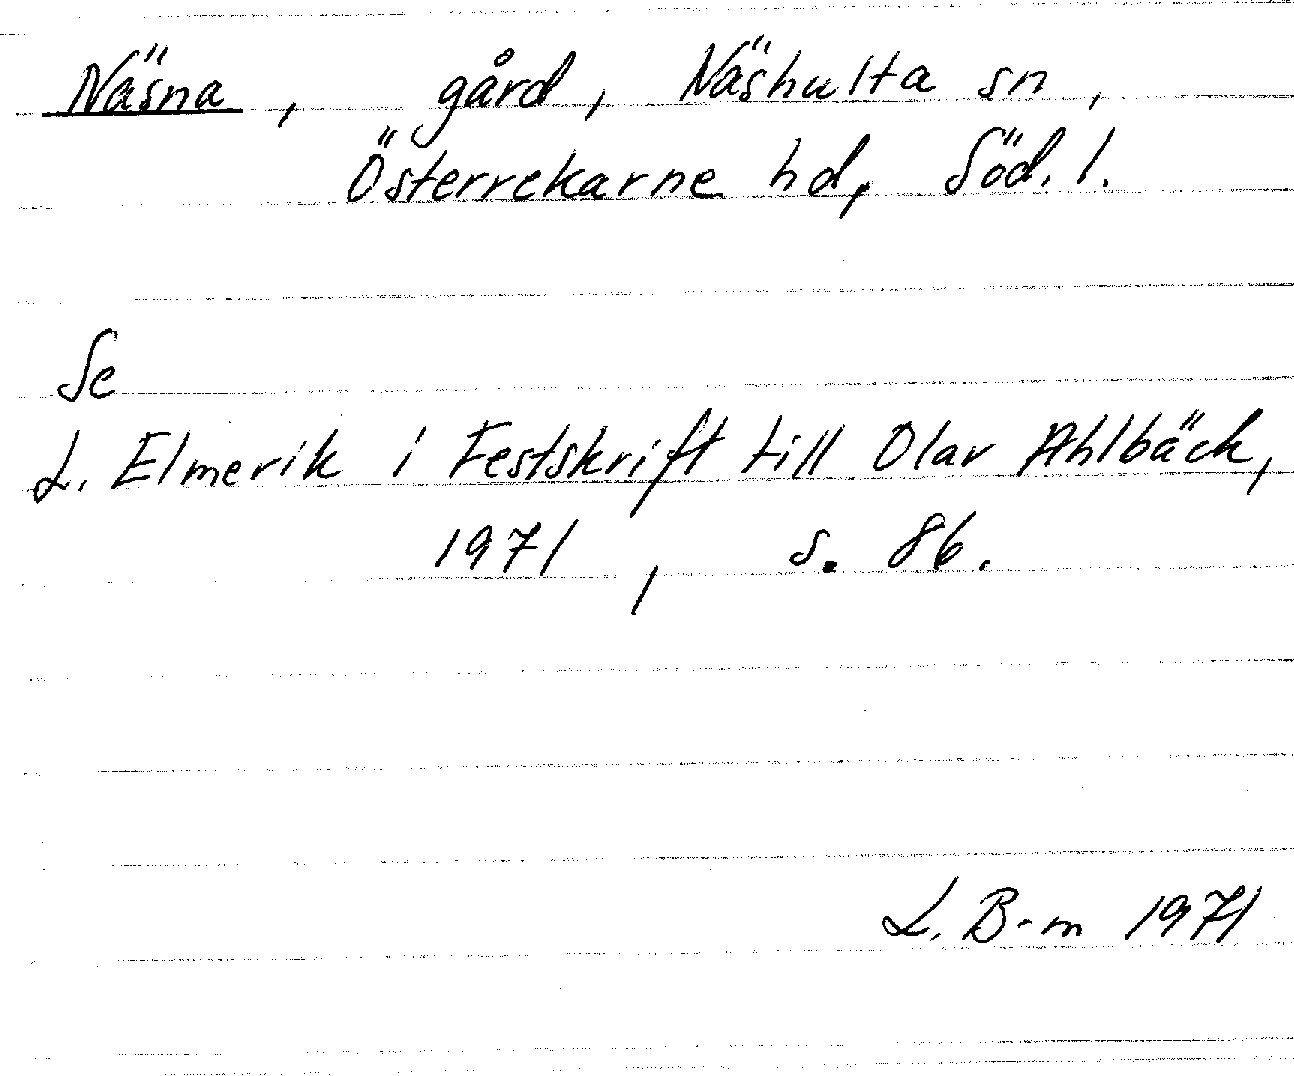 Näsna, gård, Näshulta sn,
Österrekarne hd, Söd. l.
Se
L. Elmerik i Festskrift till Olav Ahlbäck,
1971, s. 86.
L. B-m 1971